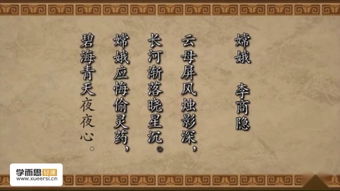 嫦娥　李商隐
云母屏风烛影深，
长河渐落晓星沉。
嫦娥应悔偷灵药，
碧海青天夜夜心。
学而思网校
www.xueersi.cn